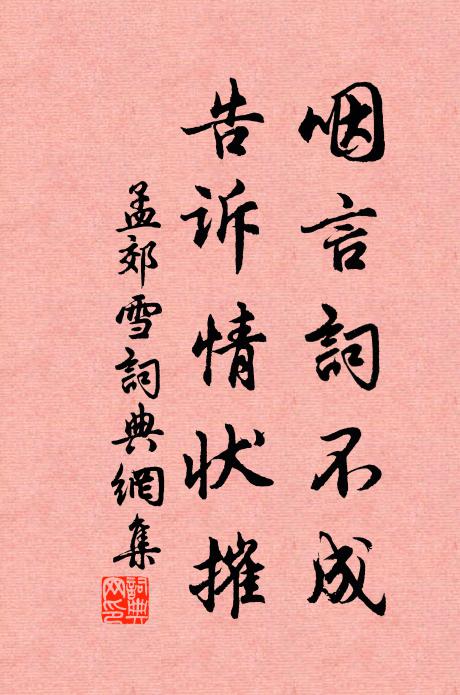 咽言詞不成
告诉情状摧
孟郊雪詞典網集
詞典网印